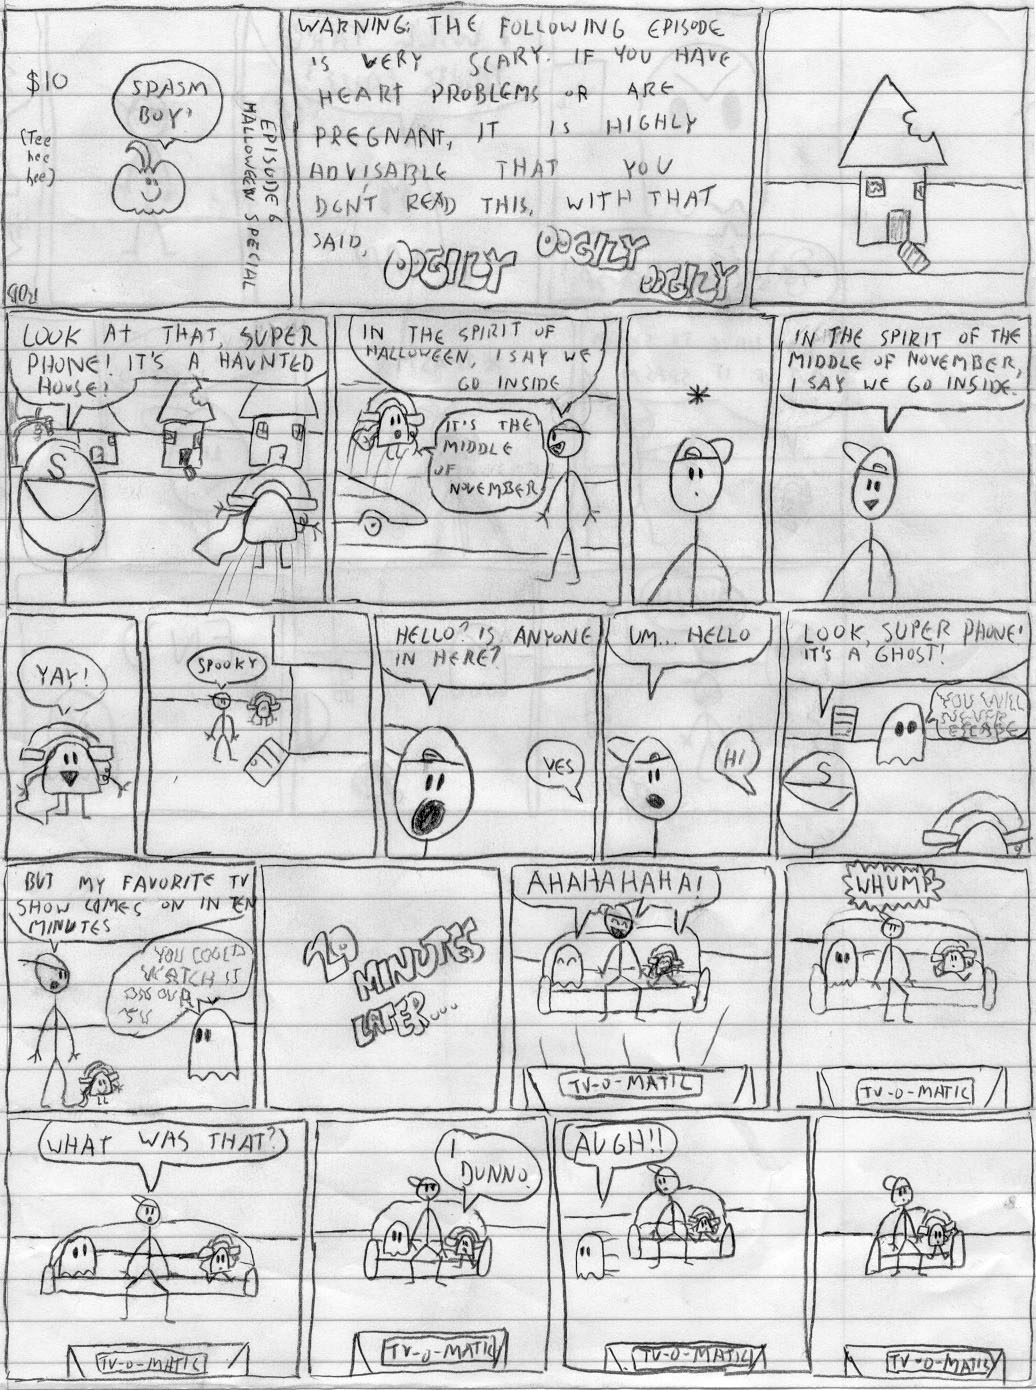 $10
(Tee
hee
hee)
SPASM
BOY!
EPISODE 6
HALLOWEEN SPECIAL
ROB
WARNING: THE FOLLOWING EPISODE
IS VERY SCARY. IF YOU HAVE
HEART PROBLEMS OR ARE
PREGNANT, IT IS HIGHLY
ADVISABLE THAT YOU
DON'T READ THIS. WITH THAT
SAID,
OOGILY
OOGILY
OOGILY
LOOK AT THAT, SUPER
PHONE! IT'S A HAUNTED
HOUSE!
S
IN THE SPIRIT OF
HALLOWEEN, I SAY WE
GO INSIDE
IT'S THE
MIDDLE
OF
NOVEMBER
*
IN THE SPIRIT OF THE
MIDDLE OF NOVEMBER,
I SAY WE GO INSIDE.
YAY!
SPOOKY
HELLO? IS ANYONE
IN HERE?
YES
UM... HELLO
HI
LOOK, SUPER PHONE!
IT'S A GHOST!
YOU WILL
NEVER
ESCAPE
S
BUT MY FAVORITE TV
SHOW COMES ON IN TEN
MINUTES
YOU COULD
WATCH IT
ON OUR
TV
MINUTES
LATER...
AHAHAHAHA!
TV-O-MATIC
WHUMP
TV-O-MATIC
WHAT WAS THAT?
TV-O-MATIC
I
DUNNO.
TV-O-MATIC
AUGH!!
TV-O-MATIC
TV-O-MATIC